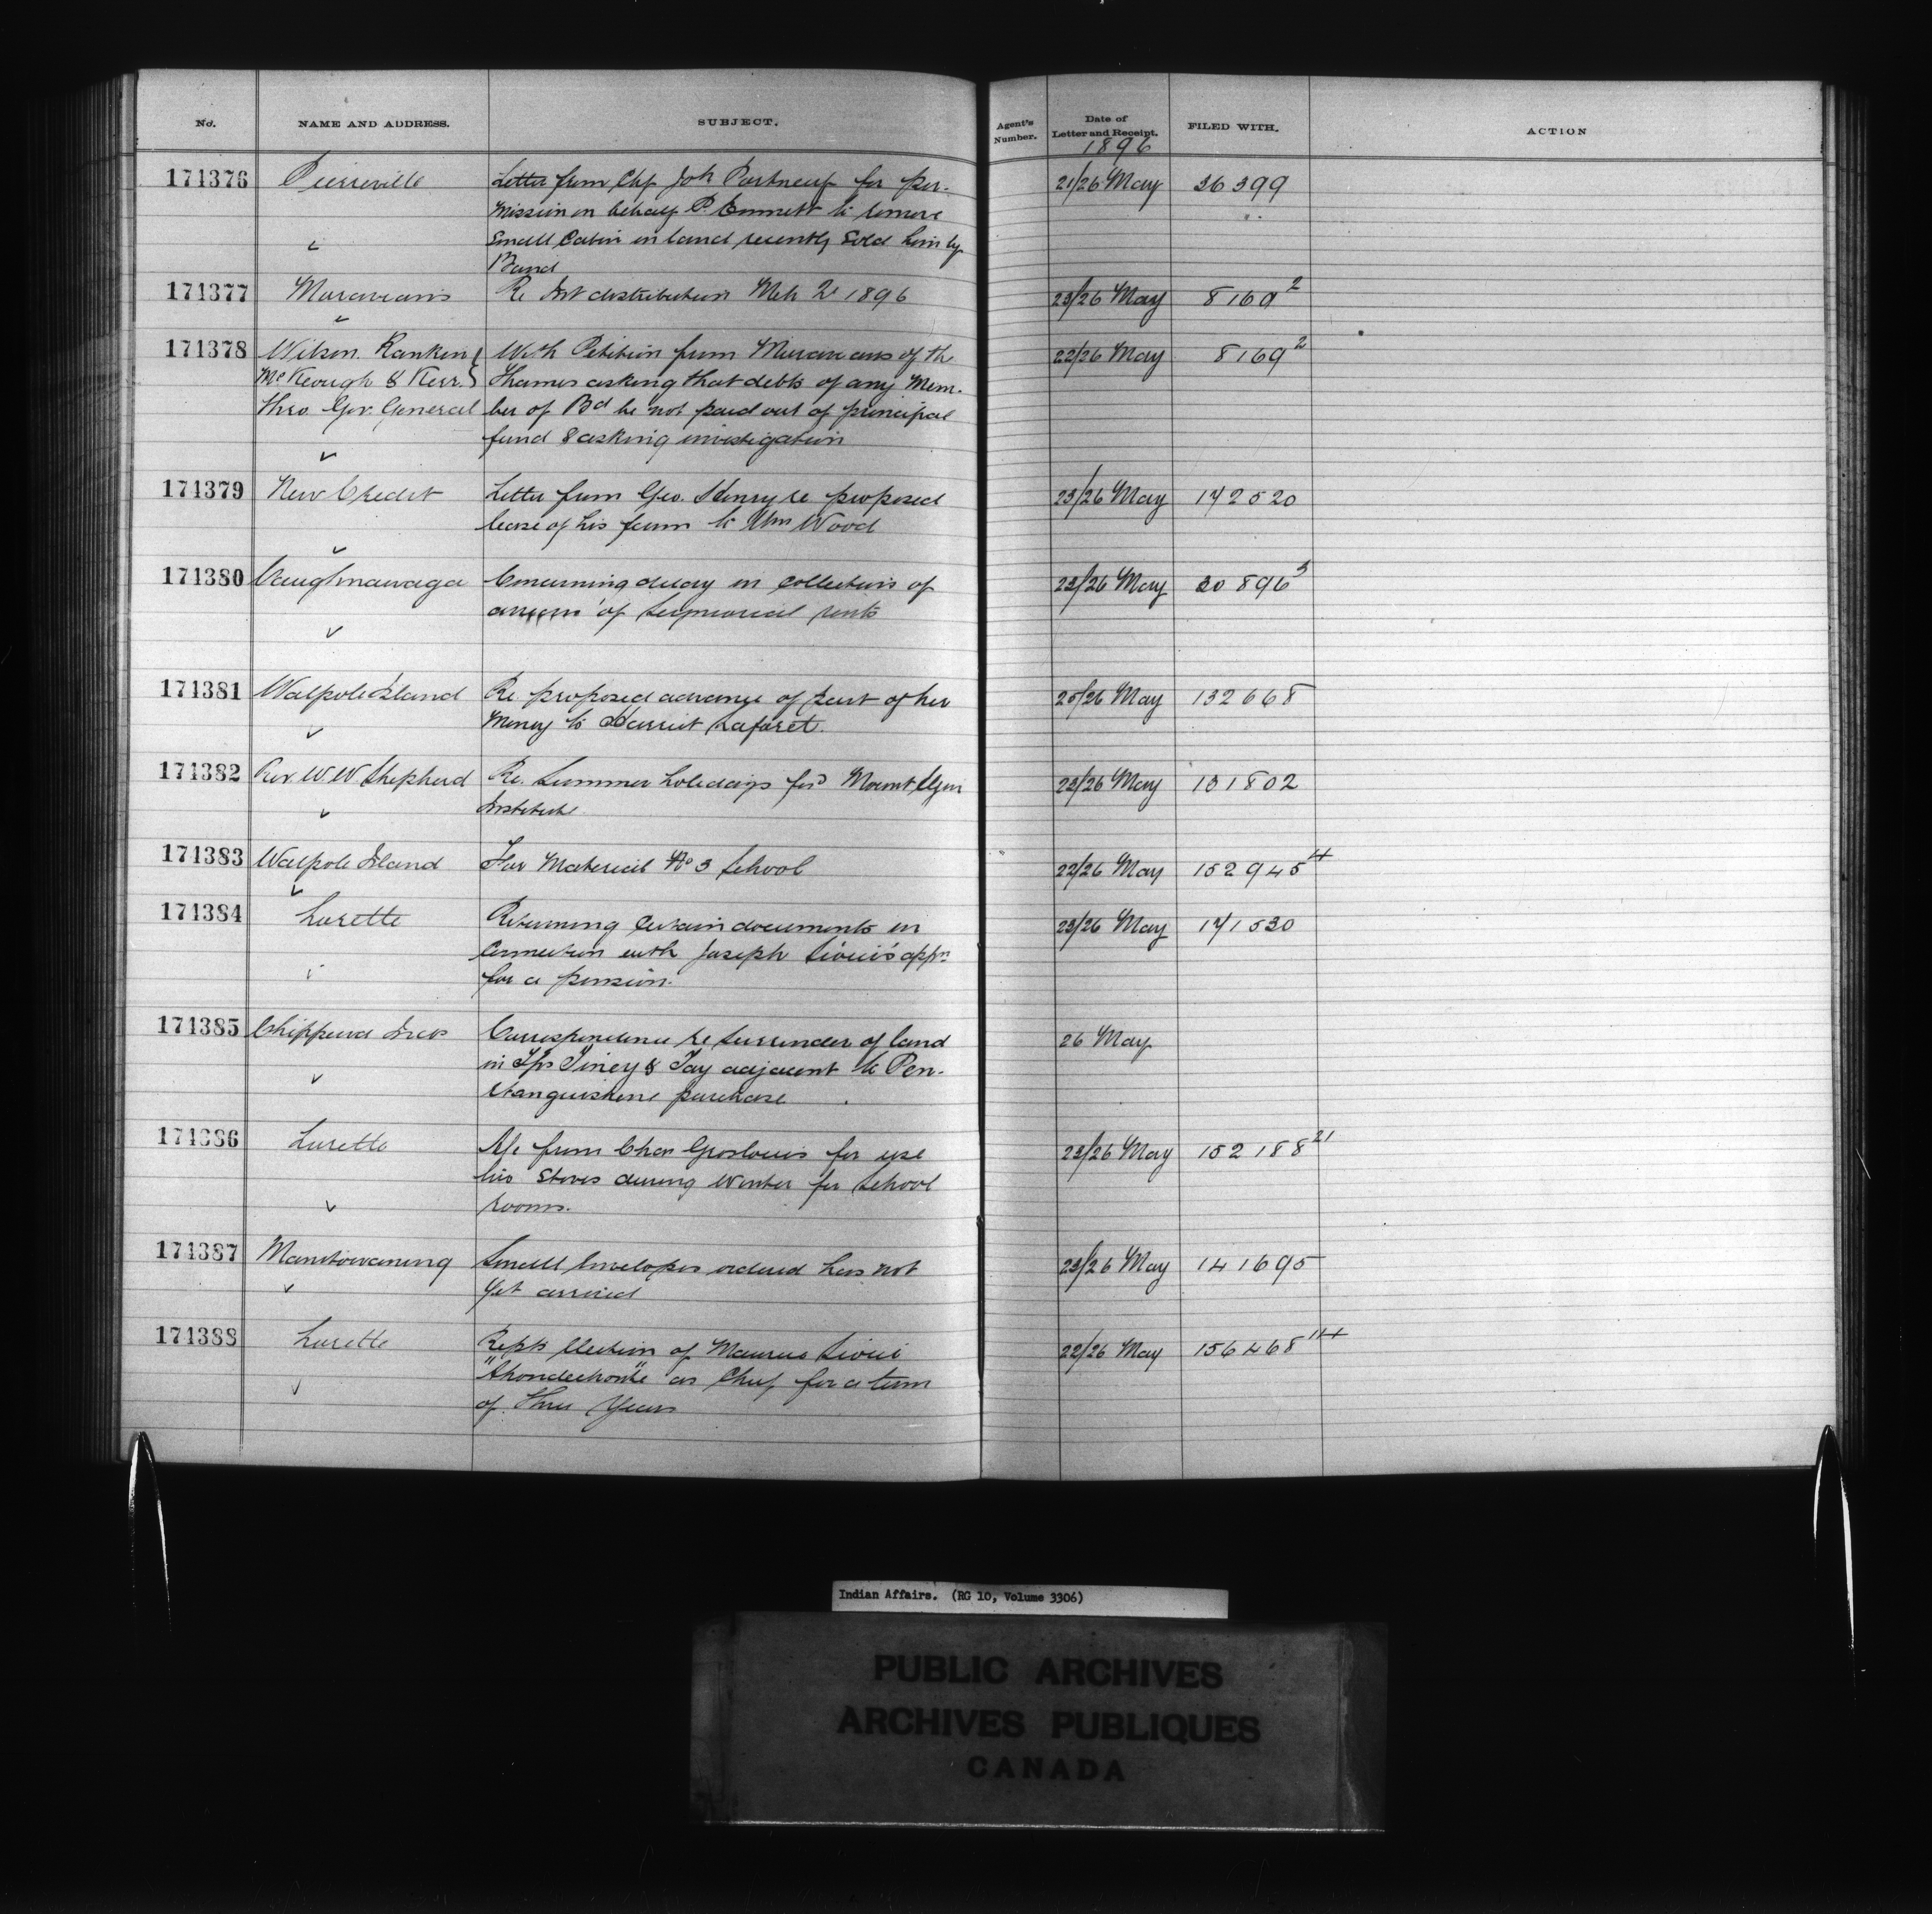 No. NAME AND ADDRESS. SUBJECT. Agent's Number. Date of Letter and Receipt. FILED WITH. ACTION
1896
171376 Pierreville Letter from Chf Joh Portneuf for per- 21/26 May 36399
mission on behalf P. Emmett to remove
small Cabin on land recently sold him by
Band
171377 Moravians Re Int distribution Mch 2 1896 23/26 May 8169²
171378 Wilson Rankin With Petition from Moravians of the 22/26 May 8169²
McKeough & Kerr Thames asking that debts of any Mem-
thro Gov. General ber of Bd be not paid out of principal
fund & asking investigation
171379 New Credit Letter from Geo. Henry re proposed 23/26 May 172520
lease of his farm to Wm Wood
171380 Caughnawaga Concerning delay in collection of 23/26 May 30896³
arrears of seigniorial rents
171381 Walpole Island Re proposed advance of part of her 25/26 May 132668
money to Harriet Laforet.
171382 Rev W.W. Shepherd Re. Summer holidays for Mount Elgin 22/26 May 131802
Institute
171383 Walpole Island For Material No 3 School 22/26 May 152945⁴
171384 Lorette Returning certain documents in 23/26 May 171530
Connection with Joseph Sioui's appn
for a pension.
171385 Chippewa Inds Correspondence re surrender of land 26 May
in Tps Tiney & Tay adjacent to Pen-
etanguishene purchase
171386 Lorette A/c from Chas Groslouis for use 23/26 May 152188²¹
his Stoves during winter for School
rooms.
171387 Manitowaning Small Envelopes ordered has not 23/26 May 141695
yet arrived
171388 Lorette Repts election of Maurice Sioui 22/26 May 156468
as Chief for a term
of three years
Indian Affairs. (RG 10, Volume 3306)
PUBLIC ARCHIVES
ARCHIVES PUBLIQUES
CANADA